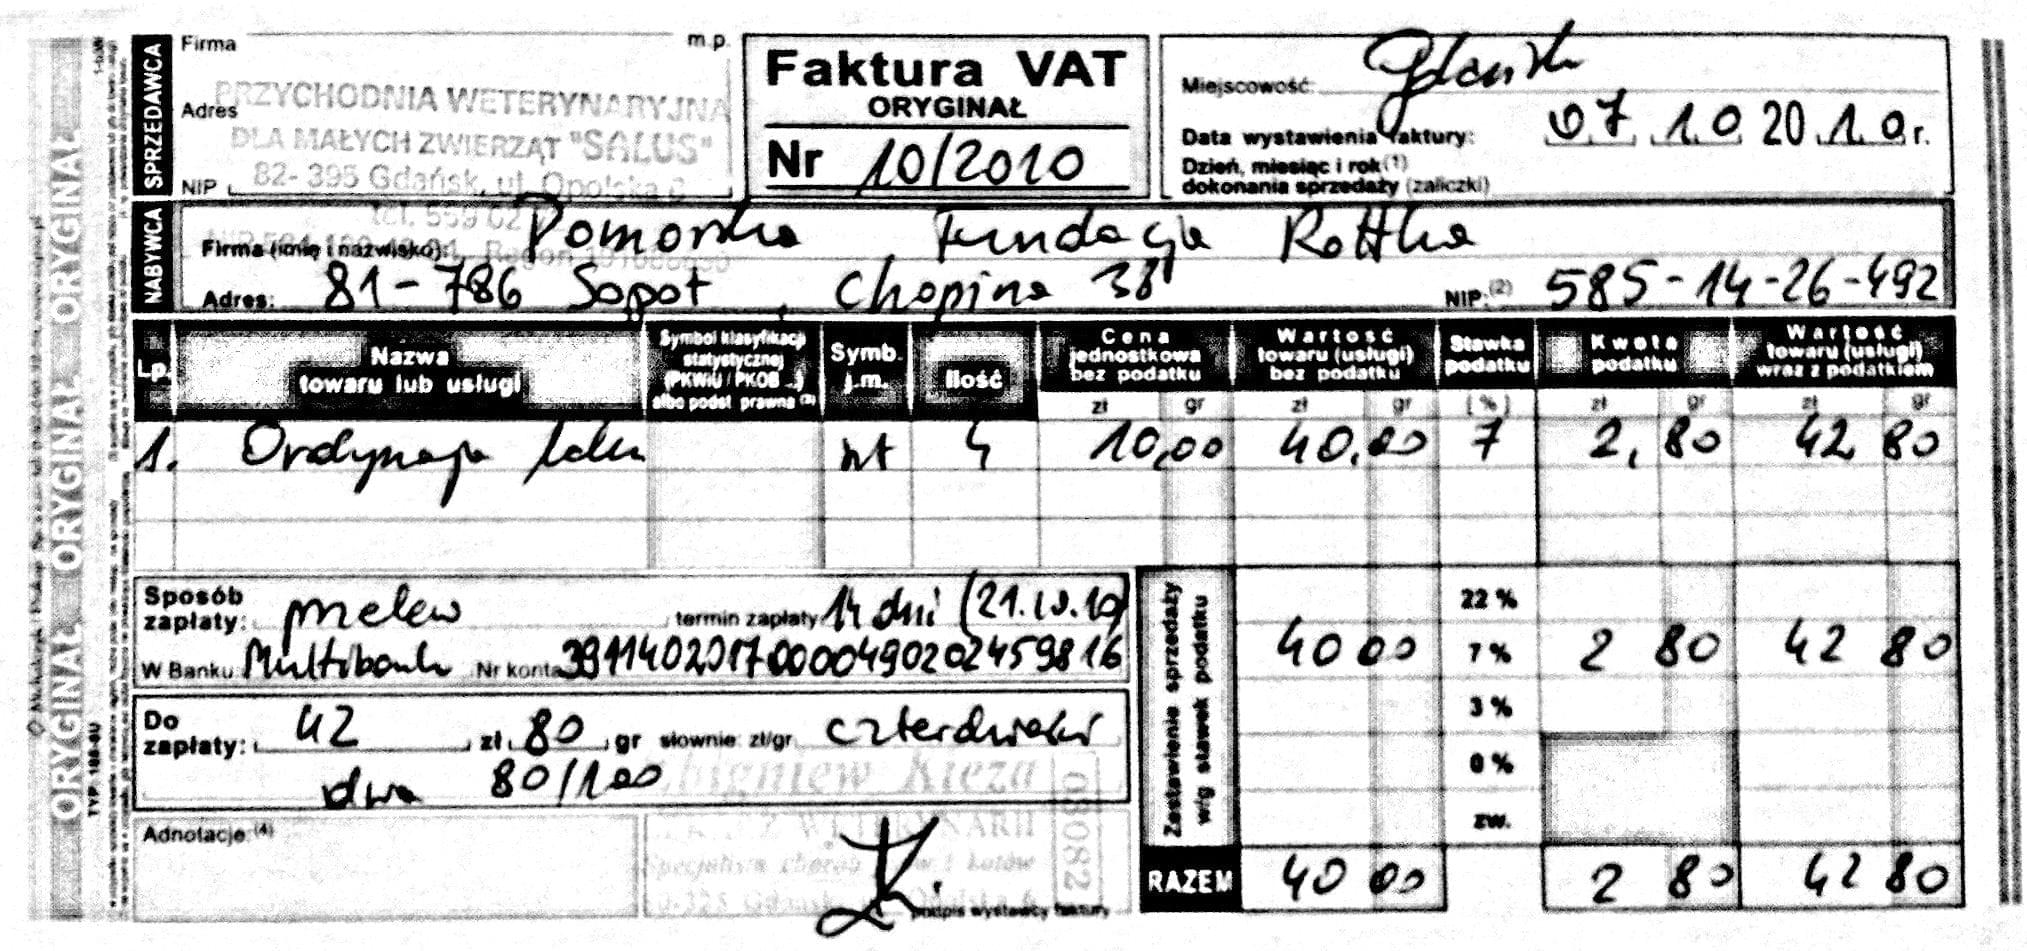 SPRZEDAWCA
Firma
m.p.
Adres
PRZYCHODNIA WETERYNARYJNA
DLA MAŁYCH ZWIERZĄT "SALUS"
82-395 Gdańsk, ul. Opolska
NIP
tel. 559 02
Faktura VAT
ORYGINAŁ
Nr 10/2010
Miejscowość: Gdańsk
Data wystawienia faktury: 07.10.2010 r.
Dzień, miesiąc i rok (1)
dokonania sprzedaży (zaliczki)
NABYWCA
Firma (imię i nazwisko): Pomorska Fundacja Rottka
Adres: 81-786 Sopot, Chopina 38
NIP: (2) 585-14-26-492
Lp. Nazwa towaru lub usługi Symbol klasyfikacji statystycznej (PKWiU / PKOB ..) albo podst. prawna (3) Symb. j.m. Ilość Cena jednostkowa bez podatku Wartość towaru (usługi) bez podatku Stawka podatku Kwota podatku Wartość towaru (usługi) wraz z podatkiem
zł gr zł gr (%) zł gr zł gr
1. Ordynacja leku szt 4 10,00 40,00 7 2,80 42 80
Sposób zapłaty: przelew termin zapłaty 14 dni (21.10.10)
W Banku Multibank Nr konta 39114020170000490202459816
Do zapłaty: 42 zł 80 gr słownie: zł/gr czterdzieści
dwa 80/100
Zbigniew Kieza
03082
Adnotacje: (4)
podpis wystawcy faktury
Zestawienie sprzedaży w/g stawek podatku
22 %
40 00 7 % 2 80 42 80
3 %
0 %
zw.
RAZEM 40 00 2 80 42 80
ORYGINAŁ ORYGINAŁ ORYGINAŁ ORYGINAŁ
TYP. 108-8U